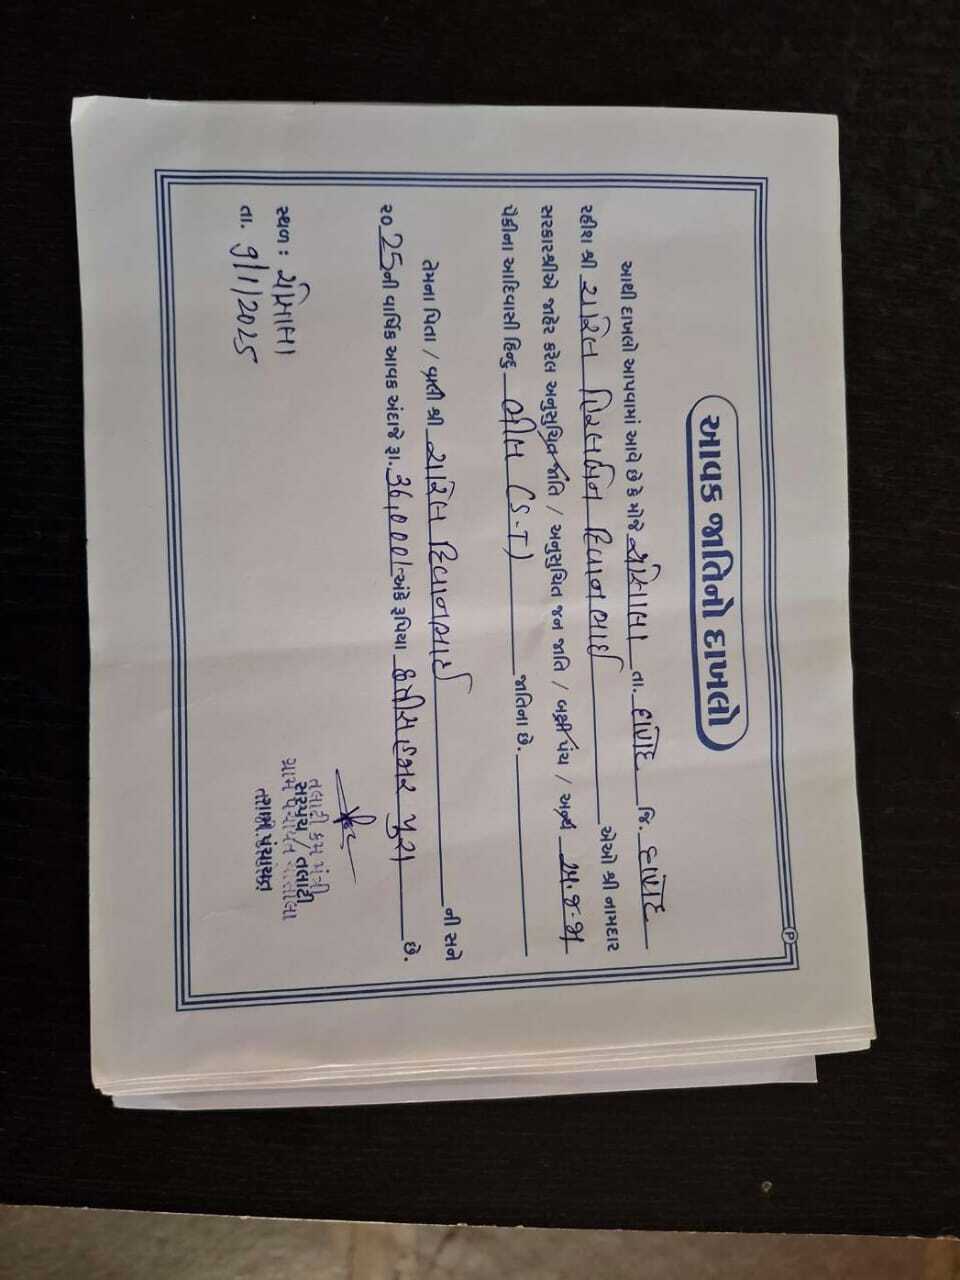 આવક જાતિનો દાખલો
આથી દાખલો આપવામાં આવે છે કે મોજે તા. દાહોદ જિ. દાહોદ
રહીશ શ્રી દિવાનભાઈ એઓ શ્રી નામદાર
સરકારશ્રીએ જાહેર કરેલ અનુસુચિત જાતિ / અનુસુચિત જન જાતિ / બક્ષી પંચ / અન્ય અ.જ.જા
પૈકીના આદિવાસી હિન્દુ ભીલ (S-T) જાતિના છે.
તેમના પિતા / વાલી શ્રી દિવાનભાઈ ની સને
૨૦25ની વાર્ષિક આવક અંદાજે રૂા. 36,000/- અંકે રૂપિયા છત્રીસ હજાર પુરા છે.
સ્થળ :
તા. 9/1/2025
તલાટી કમ મંત્રી
સરપંચ / તલાટી
ગ્રામ પંચાયત